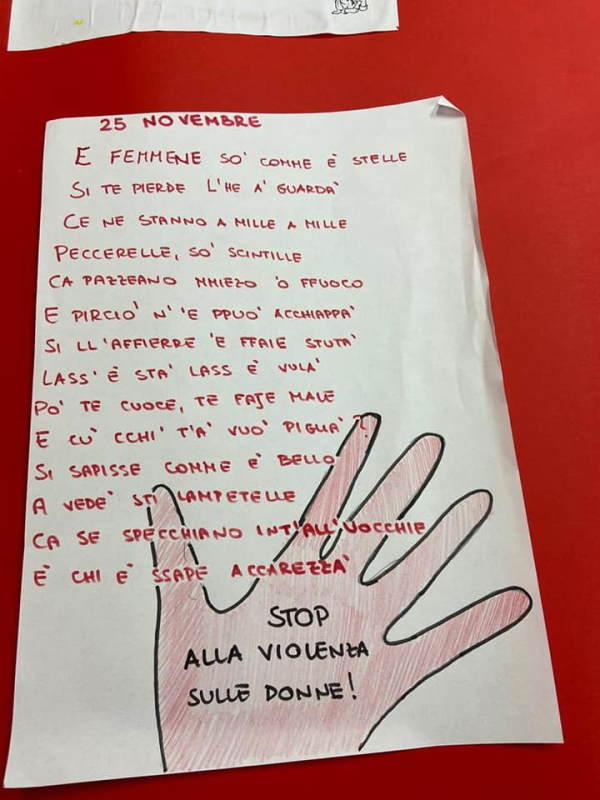 25 NOVEMBRE
E FEMMENE SO' COMME E' STELLE
SI TE PIERDE L'HE A' GUARDA'
CE NE STANNO A MILLE A MILLE
PECCERELLE, SO' SCINTILLE
CA PAZZEANO MMIEZO 'O FFUOCO
E PIRCIO' N' 'E PPUO' ACCHIAPPA'
SI LL'AFFIERRE 'E FFAIE STUTA'
LASS' E' STA' LASS E' VULA'
PO' TE CUOCE, TE FAJE MALE
E CU' CCHI' T'A' VUO' PIGLIA'?
SI SAPISSE COMME E' BELLO
A VEDE' STI LAMPETELLE
CA SE SPECCHIANO INT'ALL'UOCCHIE
E' CHI E' SSAPE ACCAREZZA'
STOP
ALLA VIOLENZA
SULLE DONNE!